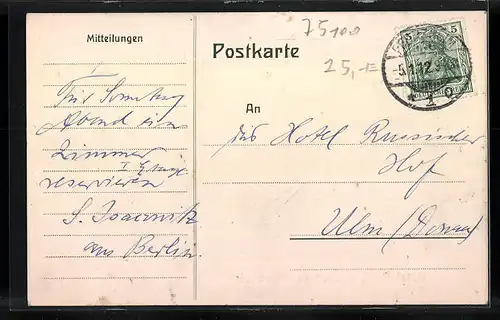 Mitteilungen
Postkarte
75100
25,-
5
5
-5.1.12
An
Für Sonntag
Abend ein
Zimmer
I Etage
reservieren
S.
aus Berlin.
das Hotel Russischer
Hof
Ulm (Donau)